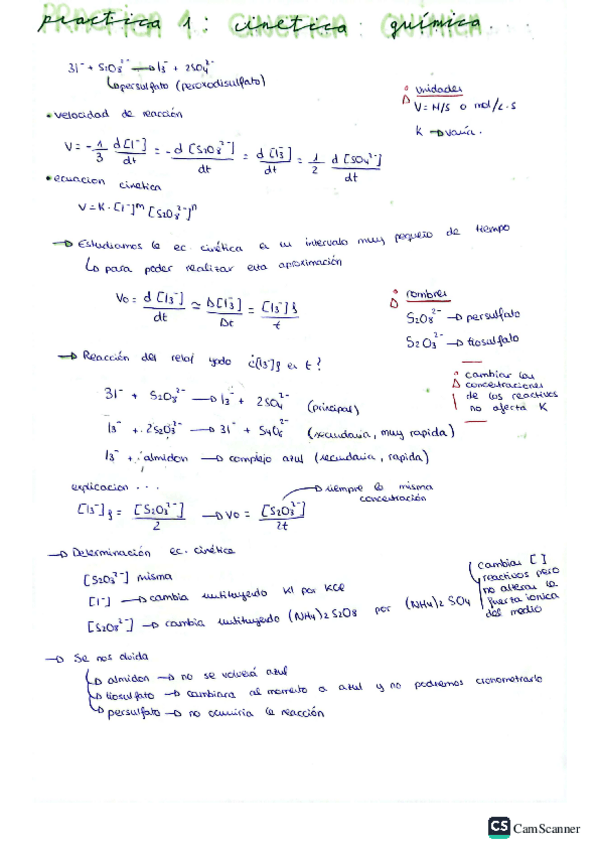 practica 1: cinetica química.
3I⁻ + S2O8²⁻ → I3⁻ + 2SO4²⁻
↳ persulfato (peroxodisulfato)
unidades
V = M/s o mol/L·s
K → varía.
• velocidad de reacción
V = -1/3 d[I⁻]/dt = -d[S2O8²⁻]/dt = d[I3⁻]/dt = 1/2 d[SO4²⁻]/dt
• ecuacion cinetica
V = K·[I⁻]^m [S2O8²⁻]^n
→ Estudiamos la ec. cinética a un intervalo muy pequeño de tiempo
↳ para poder realizar esta aproximación
V0 = d[I3⁻]/dt ≃ Δ[I3⁻]/Δt = [I3⁻]f/t
nombres
S2O8²⁻ → persulfato
S2O3²⁻ → tiosulfato
→ Reacción del reloj yodo ¿[I3⁻]f en t?
3I⁻ + S2O8²⁻ → I3⁻ + 2SO4²⁻ (principal)
I3⁻ + 2S2O3²⁻ → 3I⁻ + S4O6²⁻ (secundaria, muy rapida)
I3⁻ + almidon → complejo azul (secundaria, rapida)
cambiar las
concentraciones
de los reactivos
no afecta K
explicacion ...
[I3⁻]f = [S2O3²⁻]/2 → V0 = [S2O3²⁻]/2t
→ siempre la misma
concentración
→ Determinación ec. cinética
[S2O3²⁻] misma
[I⁻] → cambia sustituyendo KI por KCl
[S2O8²⁻] → cambia sustituyendo (NH4)2S2O8 por (NH4)2SO4
cambiar [ ]
reactivos pero
no alterar la
fuerza ionica
del medio
→ Se nos olvida
↳ almidon → no se volverá azul
↳ tiosulfato → cambiara al momento a azul y no podremos cronometrarlo
↳ persulfato → no ocurriria la reacción
CS CamScanner